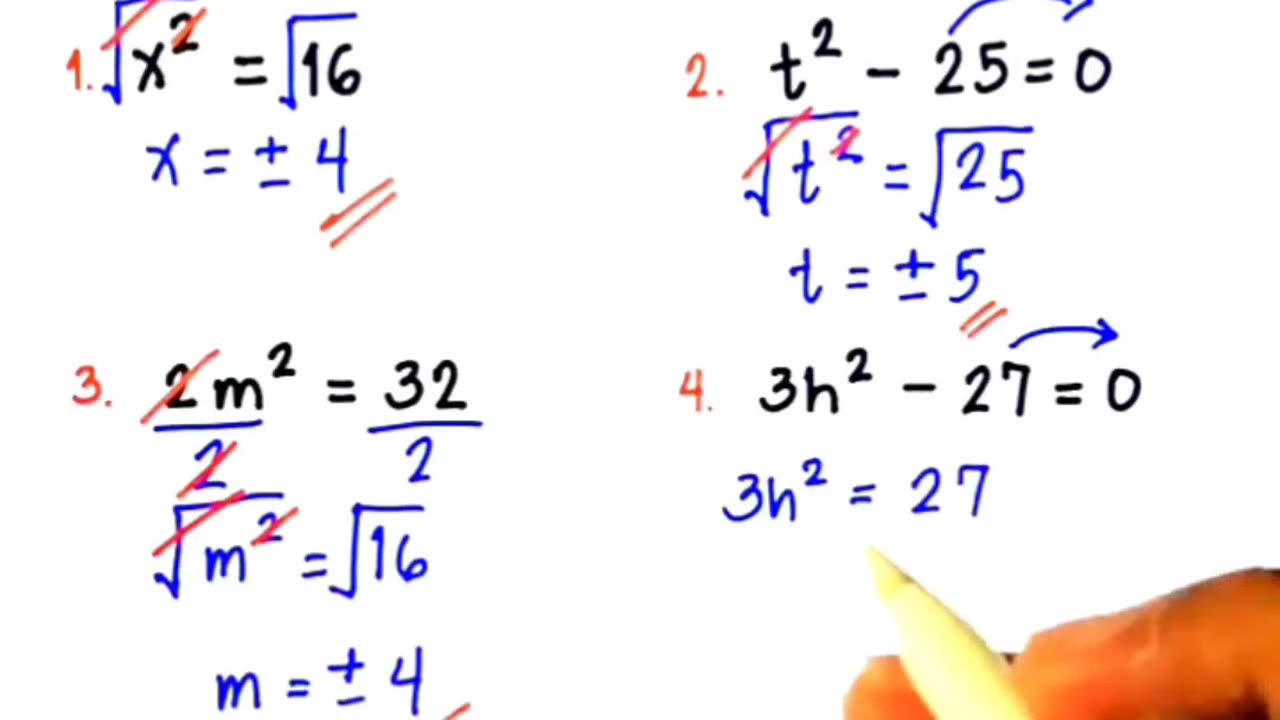 1. √x² = √16
x = ± 4
2. t² - 25 = 0
√t² = √25
t = ± 5
3. 2m² = 32
2 2
√m² = √16
m = ± 4
4. 3h² - 27 = 0
3h² = 27